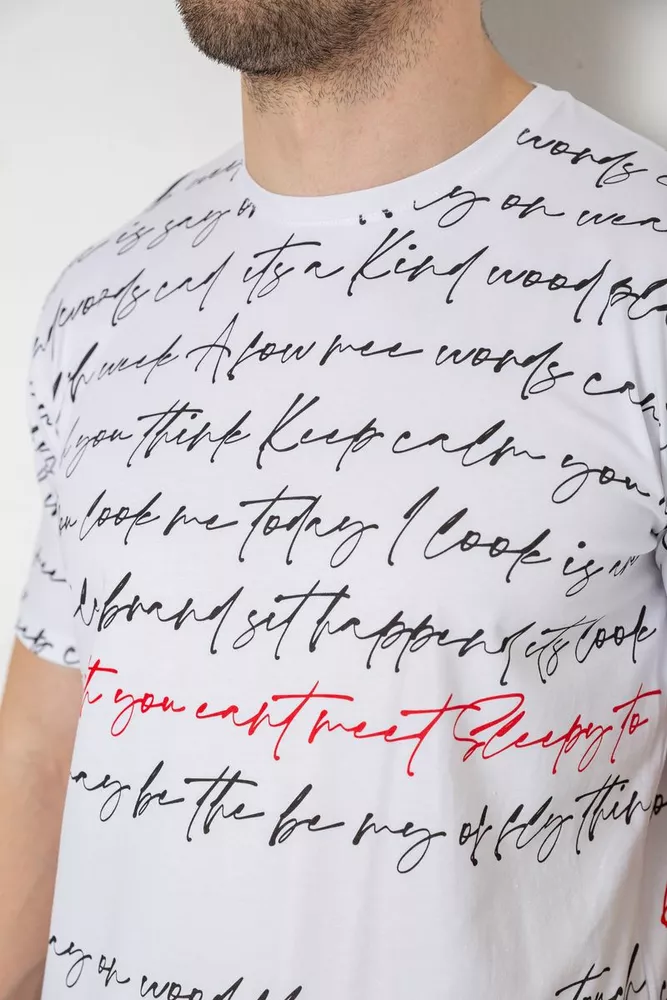 words
is say on wea
woods cad its a Kind wood pla
week A fow mee words can
you think Keep calm you
look me today I cook is
brand sit happend its cook
you cant meet Sleepy to
ay be the be my of fly thin
ay on wood touch